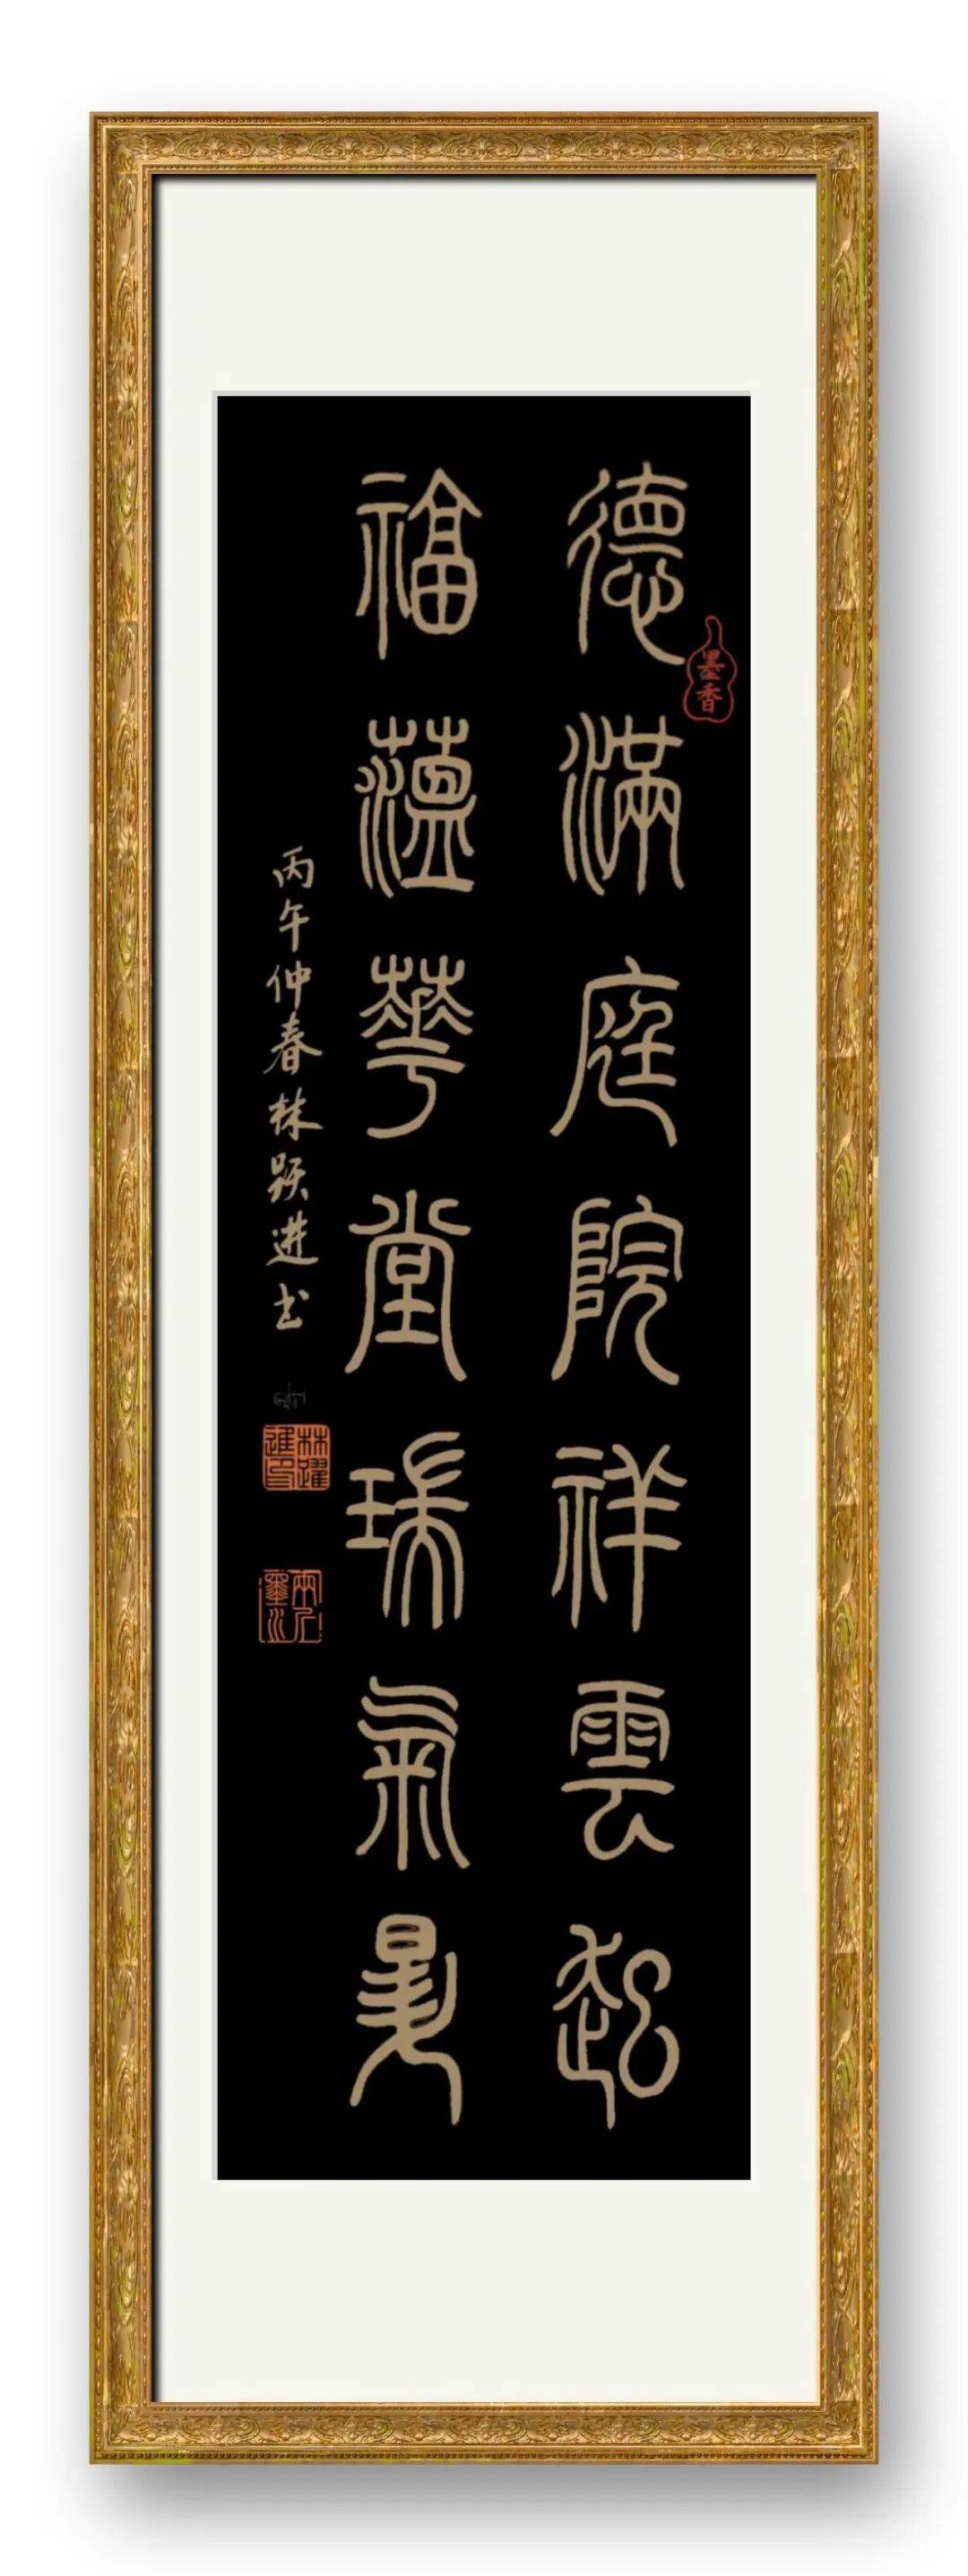 德滿庭院祥雲起
福蘊華堂瑞氣
丙午仲春林跃进书
墨香
林躍進印